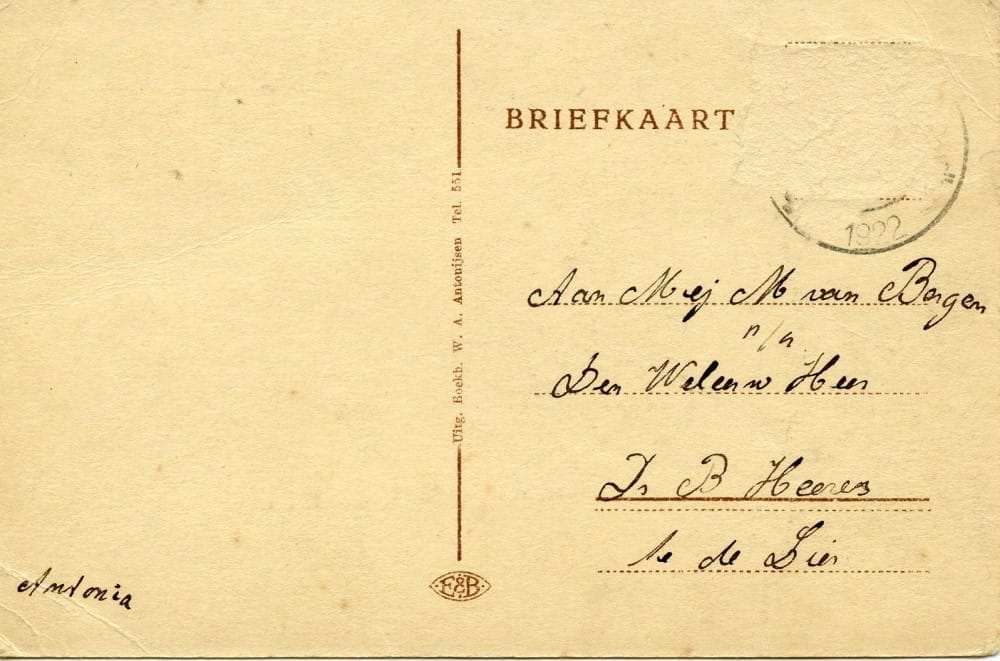 BRIEFKAART
1922
Uitg. Boekh. W. A. Antonijsen Tel. 551
Aan Mej M van Bergen
p/a
Den Weleerw Heer
Ds B Heeres
te de Lier
Antonia
E&B